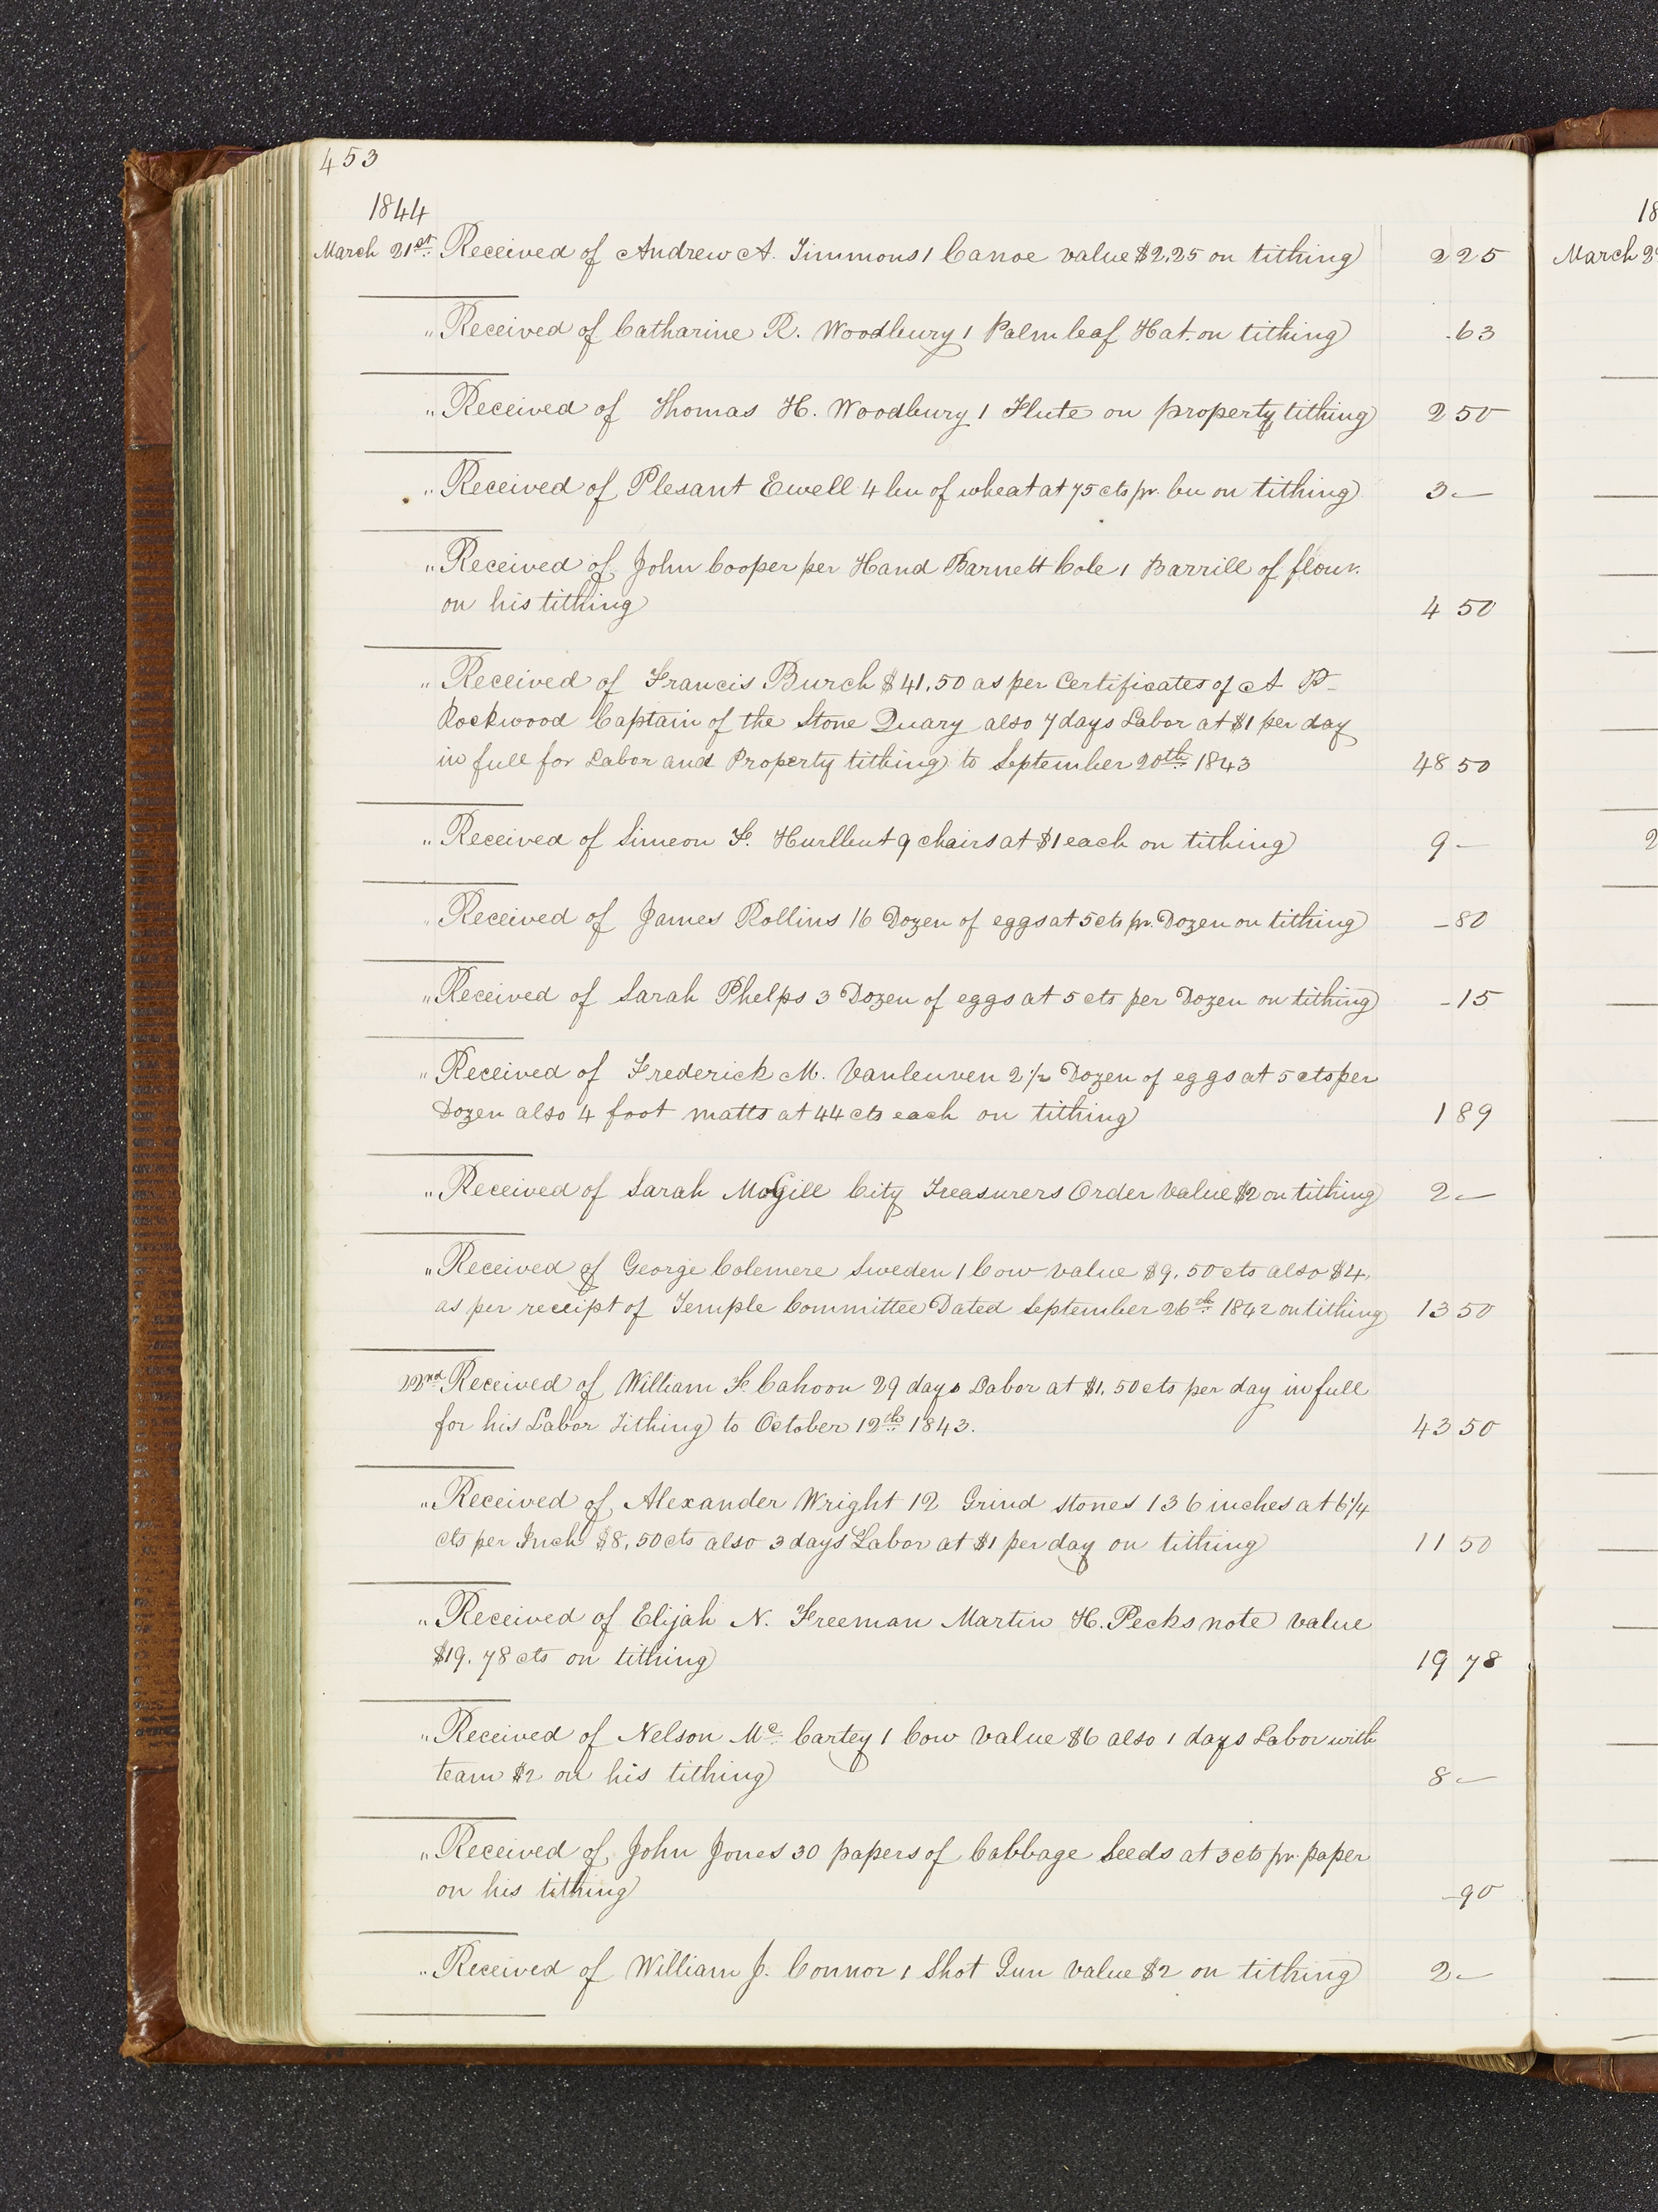 453
1844
March 21st Received of Andrew A. Timmons 1 Canoe value $2,25 on tithing 2 25
" Received of Catharine R. Woodbury 1 Palm leaf Hat. on tithing .63
" Received of Thomas H. Woodbury 1 Flute on property tithing 2 50
" Received of Plesant Ewell 4 bu of wheat at 75 cts pr. bu on tithing 3 —
" Received of John Cooper per Hand Barnett Cole 1 Barrill of flour.
on his tithing 4 50
" Received of Francis Burch $41,50 as per Certificates of A P
Rockwood Captain of the Stone Quary also 7 days Labor at $1 per day
in full for Labor and Property tithing to September 20th 1843 48 50
" Received of Simeon F. Hurlbut 9 chairs at $1 each on tithing 9 —
" Received of James Rollins 16 Dozen of eggs at 5 cts pr. Dozen on tithing – 80
" Received of Sarah Phelps 3 Dozen of eggs at 5 cts per Dozen on tithing – 15
" Received of Frederick M. Vanleuven 2 1/2 Dozen of eggs at 5 cts per
Dozen also 4 foot matts at 44 cts each on tithing 1 89
" Received of Sarah McGill City Treasurers Order Value $2 on tithing 2 —
" Received of George Colemere Sweden 1 Cow value $9,50 cts also $4,
as per receipt of Temple Committee Dated September 26th 1842 on tithing 13 50
22nd Received of William F. Cahoon 29 days Labor at $1,50 cts per day in full
for his Labor Tithing to October 12th 1843. 43 50
" Received of Alexander Wright 12 Grind stones 136 inches at 6 1/4
cts per Inch $8,50 cts also 3 days Labor at $1 per day on tithing 11 50
" Received of Elijah N. Freeman Martin H. Pecks note value
$19.78 cts on tithing 19 78
" Received of Nelson Mc Cartey 1 Cow Value $6 also 1 days Labor with
team $2 on his tithing 8 —
" Received of John Jones 30 papers of Cabbage Seeds at 3 cts pr. paper
on his tithing – 90
" Received of William J. Connor 1 Shot Gun Value $2 on tithing 2 —
18
March 2
2